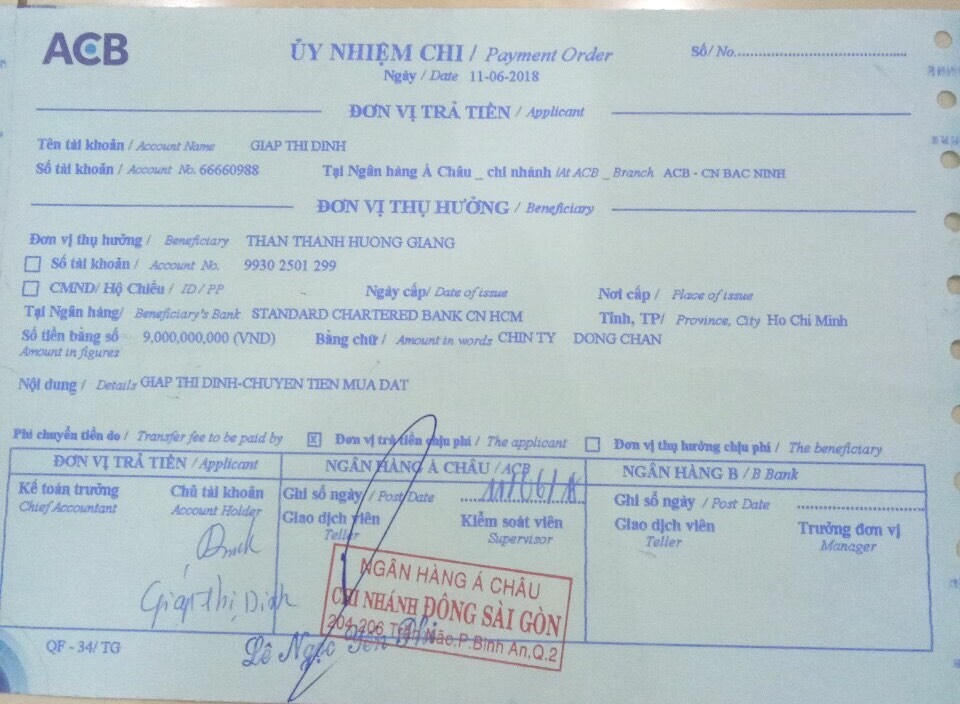 ACB
ỦY NHIỆM CHI / Payment Order
Số/ No.
Ngày / Date 11-06-2018
ĐƠN VỊ TRẢ TIỀN / Applicant
Tên tài khoản / Account Name GIAP THI DINH
Số tài khoản / Account No. 66660988 Tại Ngân hàng Á Châu _ chi nhánh /At ACB _ Branch ACB - CN BAC NINH
ĐƠN VỊ THỤ HƯỞNG / Beneficiary
Đơn vị thụ hưởng / Beneficiary THAN THANH HUONG GIANG
Số tài khoản / Account No. 9930 2501 299
CMND/ Hộ Chiếu / ID / PP Ngày cấp/ Date of issue Nơi cấp / Place of issue
Tại Ngân hàng/ Beneficiary's Bank STANDARD CHARTERED BANK CN HCM Tỉnh, TP/ Province, City Ho Chi Minh
Số tiền bằng số 9,000,000,000 (VND) Bằng chữ / Amount in words CHIN TY DONG CHAN
Amount in figures
Nội dung / Details GIAP THI DINH-CHUYEN TIEN MUA DAT
Phí chuyển tiền do / Transfer fee to be paid by x Đơn vị trả tiền chịu phí / The applicant Đơn vị thụ hưởng chịu phí / The beneficiary
ĐƠN VỊ TRẢ TIỀN / Applicant NGÂN HÀNG Á CHÂU / ACB NGÂN HÀNG B / B Bank
Kế toán trưởng Chủ tài khoản Ghi sổ ngày / Post Date 11/06/18 Ghi sổ ngày / Post Date
Chief Accountant Account Holder
Giao dịch viên Kiểm soát viên Giao dịch viên Trưởng đơn vị
Teller Supervisor Teller Manager
NGÂN HÀNG Á CHÂU
CHI NHÁNH ĐÔNG SÀI GÒN
204-206 Trần Não,P.Bình An,Q.2
Giáp Thị Dinh
Lê Ngọc Yến
QF - 34/ TG